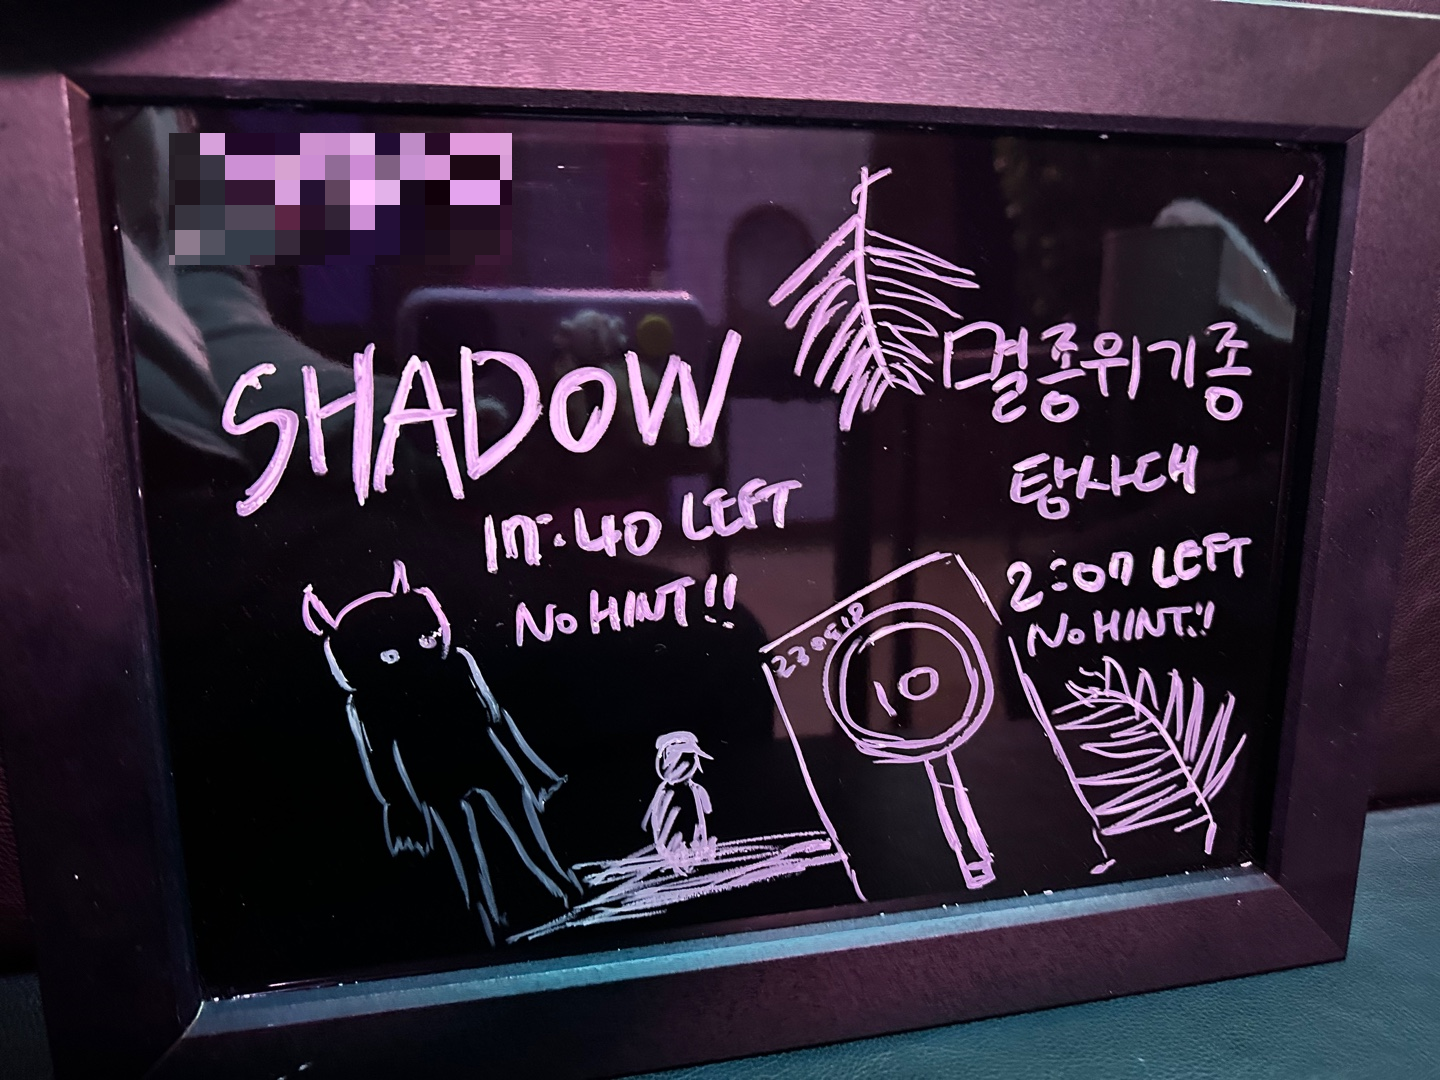 SHADOW
17:40 LEFT
NO HINT!!
멸종위기종
탐사대
2:07 LEFT
NO HINT!!
10